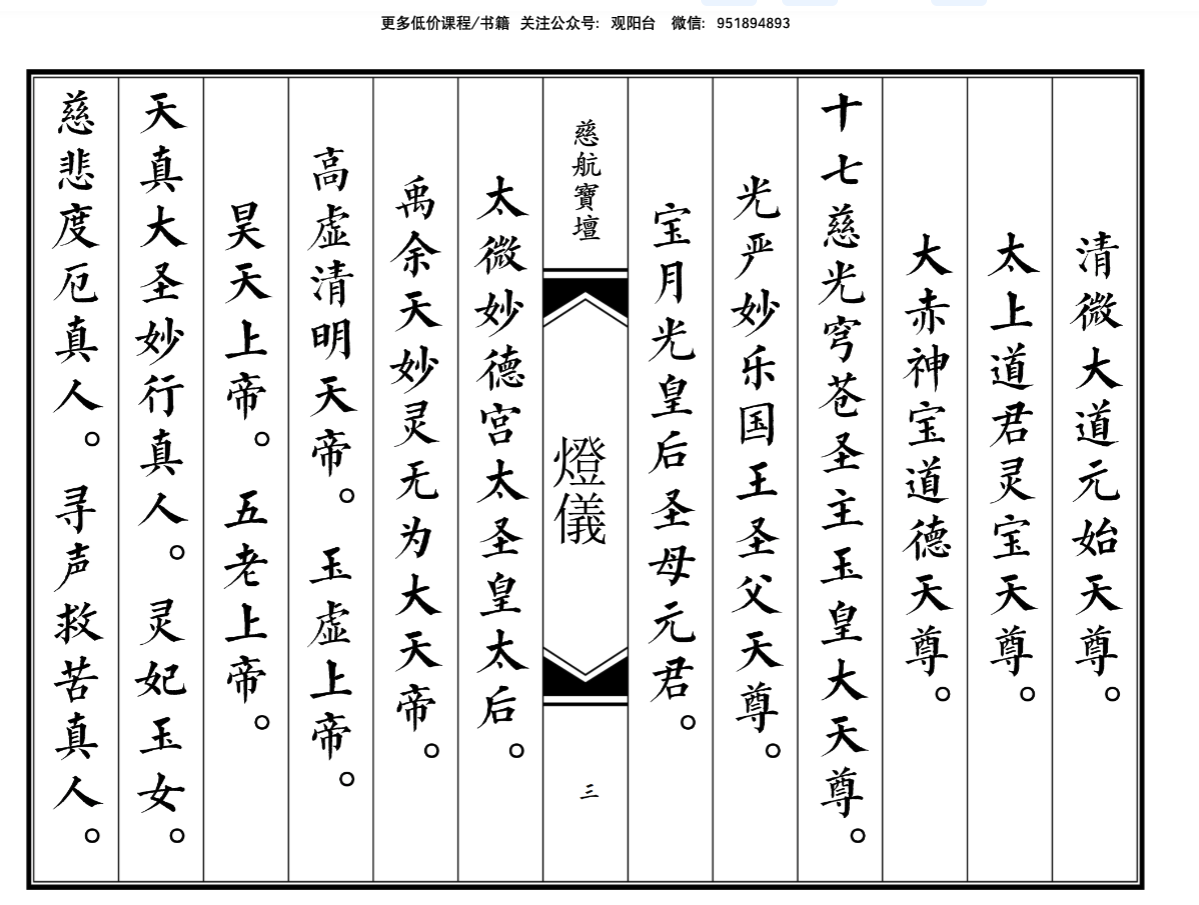 更多低价课程/书籍 关注公众号: 观阳台 微信: 951894893
清微大道元始天尊。
太上道君灵宝天尊。
大赤神宝道德天尊。
十七慈光穹苍圣主玉皇大天尊。
光严妙乐国王圣父天尊。
宝月光皇后圣母元君。
慈航寶壇
燈儀
三
太微妙德宫太圣皇太后。
禹余天妙灵无为大天帝。
高虚清明天帝。 玉虚上帝。
昊天上帝。 五老上帝。
天真大圣妙行真人。 灵妃玉女。
慈悲度厄真人。 寻声救苦真人。